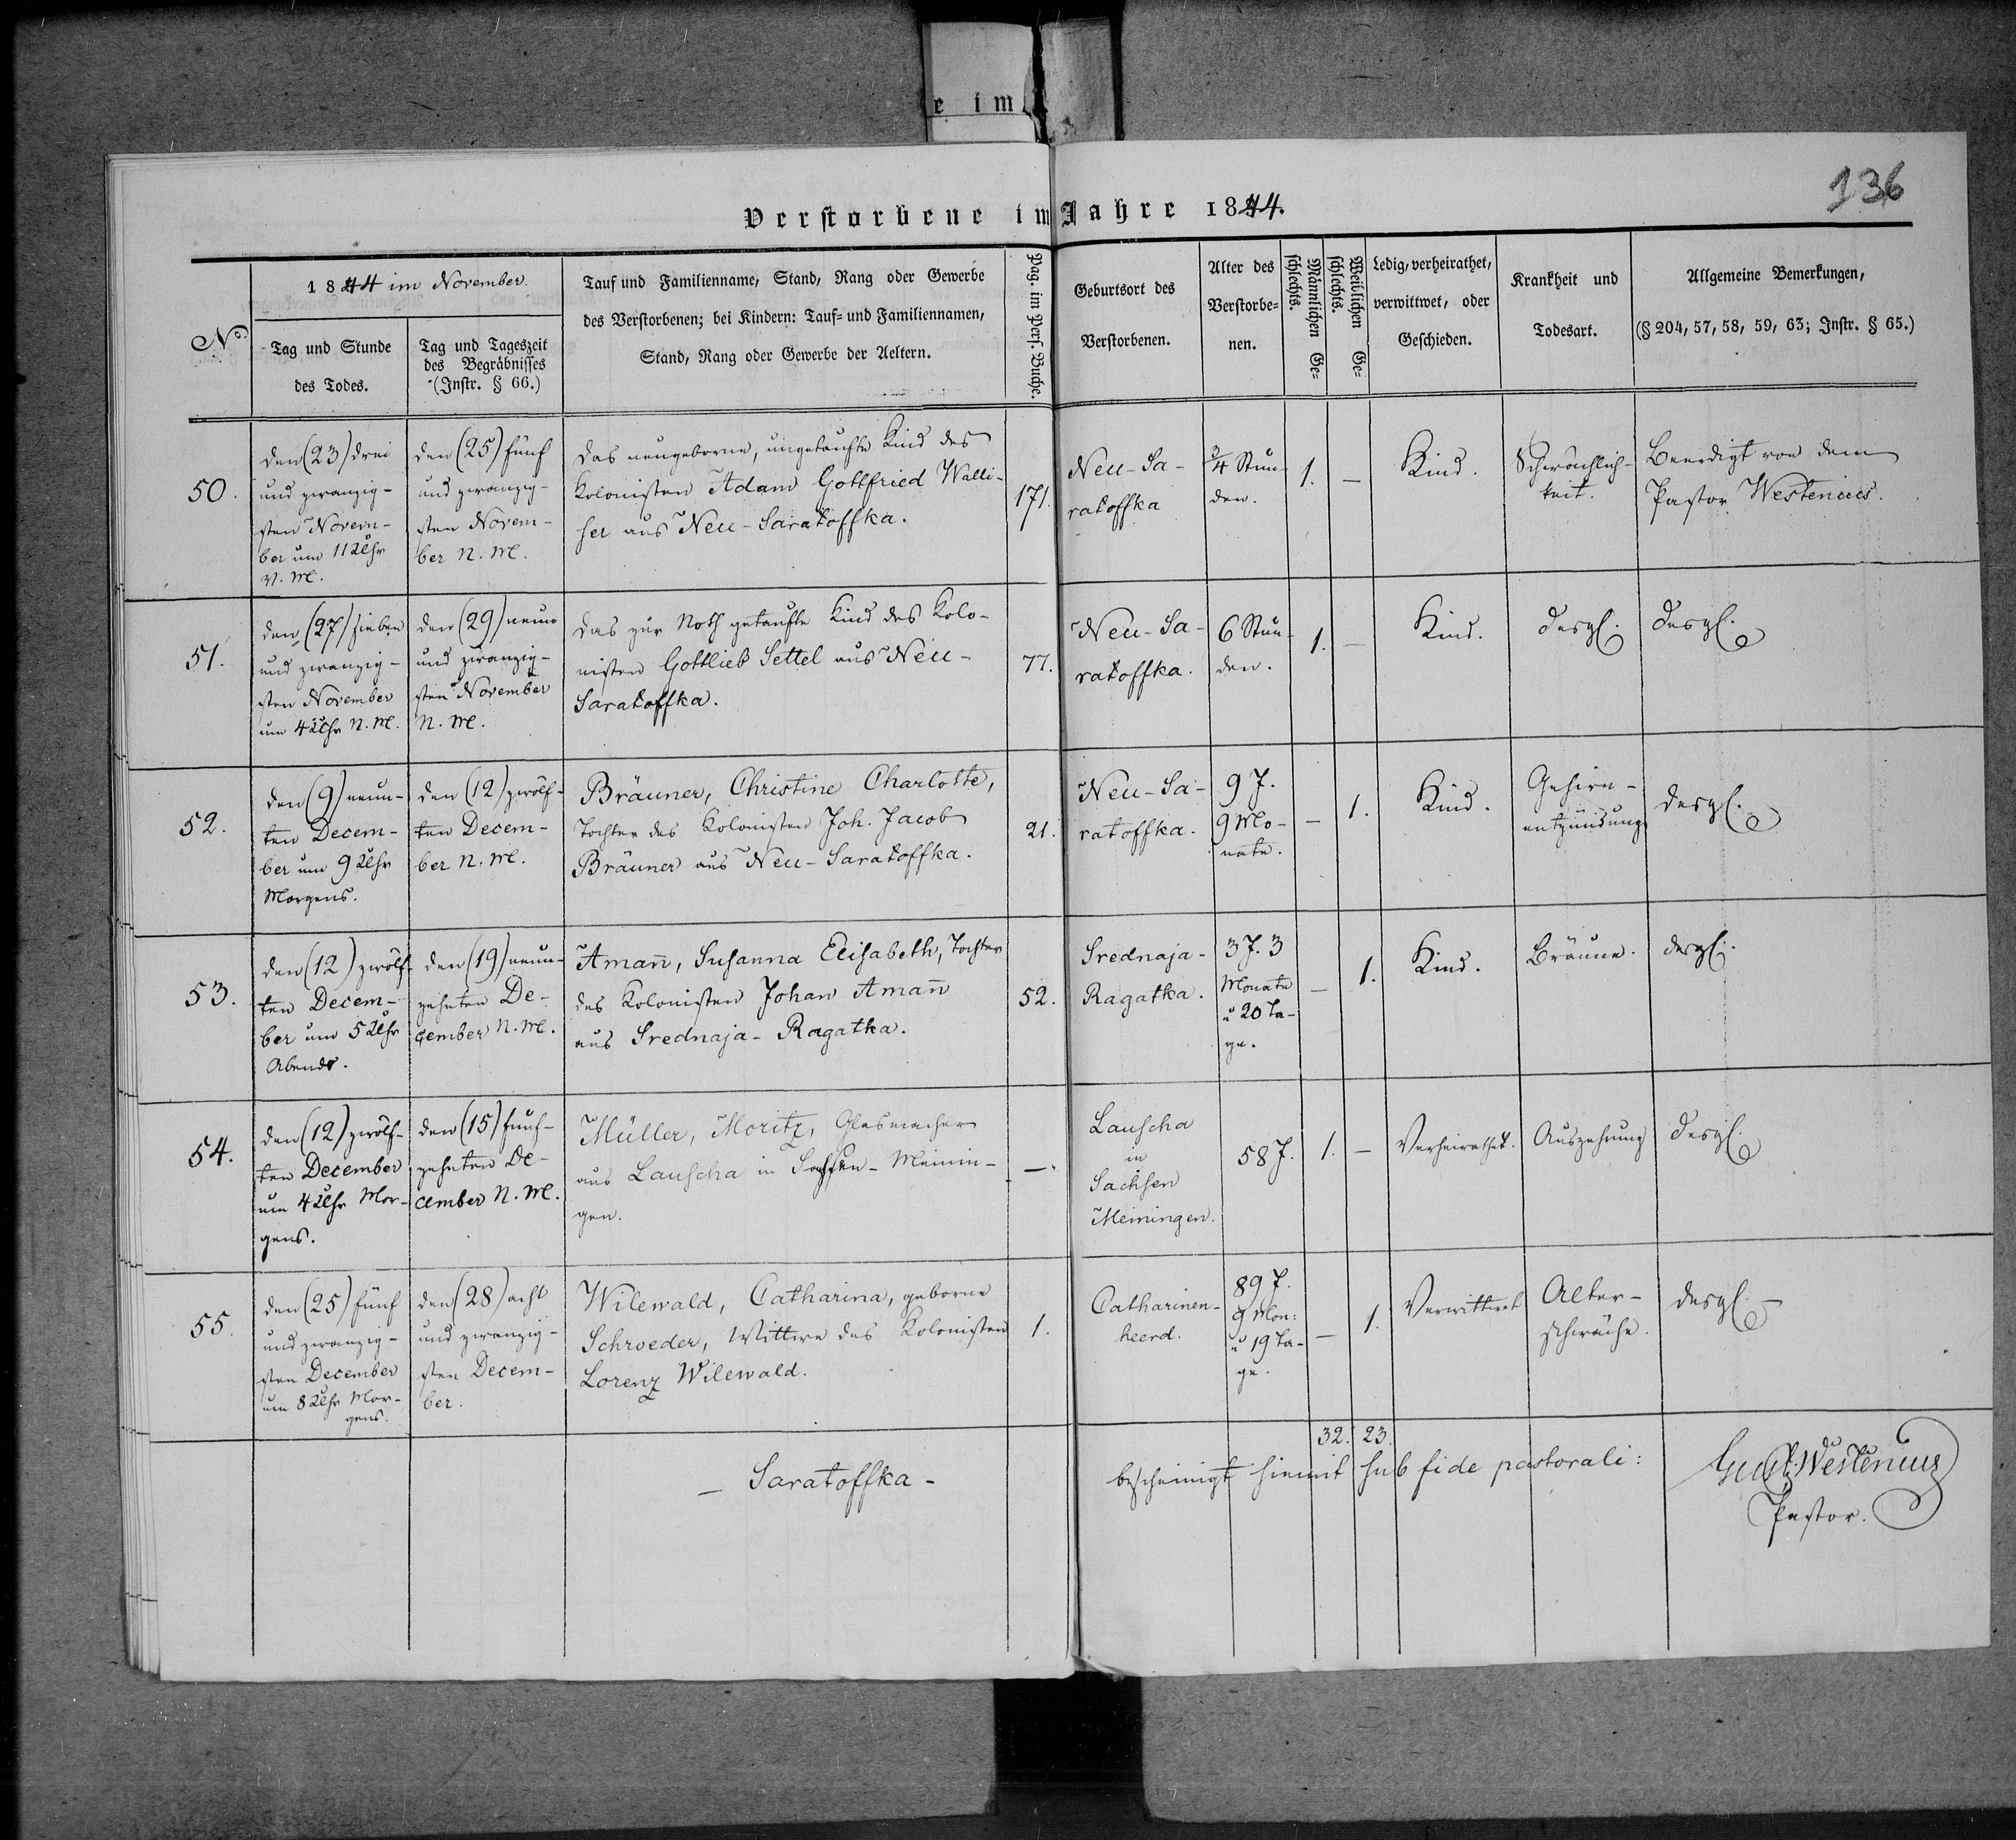 e im
136
Verstorbene im Jahre 1844.
No
1844 im November.
Tag und Stunde
des Todes.
Tag und Tageszeit
des Begräbnisses
(Instr. § 66.)
Tauf und Familienname, Stand, Rang oder Gewerbe
des Verstorbenen; bei Kindern: Tauf- und Familiennamen,
Stand, Rang oder Gewerbe der Aeltern.
Pag. im Pers. Buche.
Geburtsort des
Verstorbenen.
Alter des
Verstorbe-
nen.
Männlichen Ge-
schlechts.
Weiblichen Ge-
schlechts.
Ledig, verheirathet,
verwittwet, oder
Geschieden.
Krankheit und
Todesart.
Allgemeine Bemerkungen,
(§ 204, 57, 58, 59, 63; Instr. § 65.)
50.
den (23) drei
und zwanzig-
sten Novem-
ber um 11 Uhr
V. M.
den (25) fünf
und zwanzig-
sten Novem-
ber N. M.
Das neugeborne, ungetaufte Kind des
Kolonisten Adam Gottfried Walli-
ser aus Neu-Saratoffka.
171.
Neu-Sa-
ratoffka
3/4 Stun-
den.
1.
—
Kind.
Schwächlich-
keit.
Beerdigt von dem
Pastor Westenius.
51.
den (27) sieben
und zwanzig-
sten November
um 4 Uhr N. M.
den (29) neun
und zwanzig-
sten November
N. M.
Das zur Noth getaufte Kind des Kolo-
nisten Gottlieb Settel aus Neu-
Saratoffka.
77.
Neu-Sa-
ratoffka.
6 Stun-
den.
1.
—
Kind.
desgl.
desgl.
52.
den (9) neun-
ten Decem-
ber um 9 Uhr
Morgens.
den (12) zwölf-
ten Decem-
ber N. M.
Bräuner, Christine Charlotte,
Tochter des Kolonisten Joh. Jacob
Bräuner aus Neu-Saratoffka.
21.
Neu-Sa-
ratoffka.
9 J.
9 Mo-
nate.
—
1.
Kind.
Gehirn-
entzündung
desgl.
53.
den (12) zwölf-
ten Decem-
ber um 5 Uhr
Abends.
den (19) neun-
zehnten De-
cember N. M.
Aman̄, Susanna Elisabeth, Tochter
des Kolonisten Johan Aman̄
aus Srednaja-Ragatka.
52.
Srednaja-
Ragatka.
3 J. 3
Monate
u 20 Ta-
ge.
—
1.
Kind.
Bräune.
desgl.
54.
den (12) zwölf-
ten December
um 4 Uhr Mor-
gens.
den (15) fünf-
zehnten De-
cember N. M.
Müller, Moritz, Glasmacher
aus Lauscha in Sachsen-Meinin-
gen.
—
Lauscha
in
Sachsen
Meiningen.
58 J.
1.
—
Verheirathet.
Auszehrung
desgl.
55.
den (25) fünf
und zwanzig-
sten December
um 8 Uhr Mor-
gens.
den (28) acht
und zwanzig-
sten Decem-
ber.
Wilewald, Catharina, geborne
Schroeder, Wittwe des Kolonisten
Lorenz Wilewald.
1.
Catharinen-
heerd.
89 J.
9 Mon:
u 19 Ta-
ge.
—
1.
Verwittwet
Alter-
schwäche.
desgl.
32. 23.
— Saratoffka —
bescheinigt hiemit sub fide pastorali:
Westenius
Pastor.